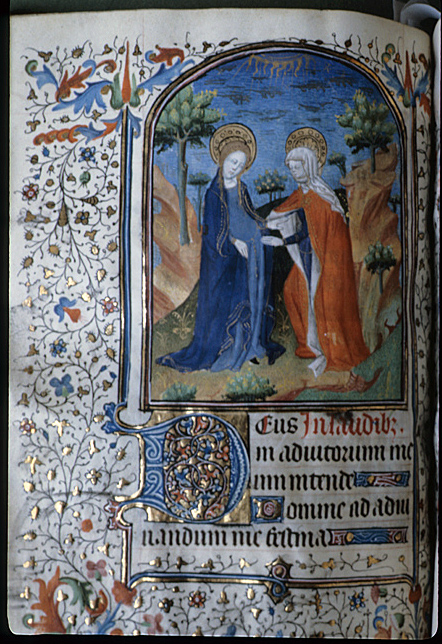 DEus In laudibz.
in adiutorium me
um intende
Domine ad adiu
uandum me festina